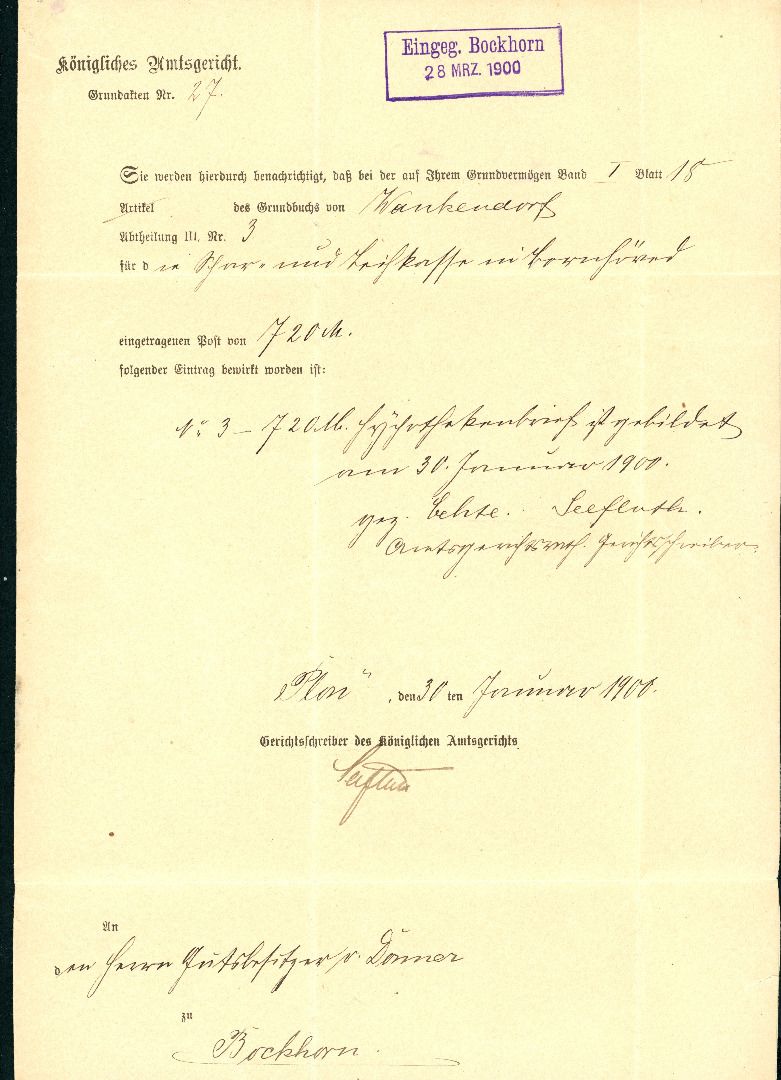 Königliches Amtsgericht.
Grundakten Nr. 27.
Eingeg. Bockhorn
28 MRZ. 1900
Sie werden hierdurch benachrichtigt, daß bei der auf Ihrem Grundvermögen Band I Blatt 18
Artikel des Grundbuchs von Wankendorf
Abtheilung III. Nr. 3
für die Spar- und Leihkasse in Bornhöved
eingetragenen Post von 720 M.
folgender Eintrag bewirkt worden ist:
No 3 – 720 M. Hypothekenbrief ist gebildet
am 30. Januar 1900.
gez. Seefluth.
Amtsgerichtsrath. Gerichtsschreiber.
Plön, den 30 ten Januar 1900.
Gerichtsschreiber des Königlichen Amtsgerichts
An
den Herrn Gutsbesitzer v.
zu
Bockhorn.